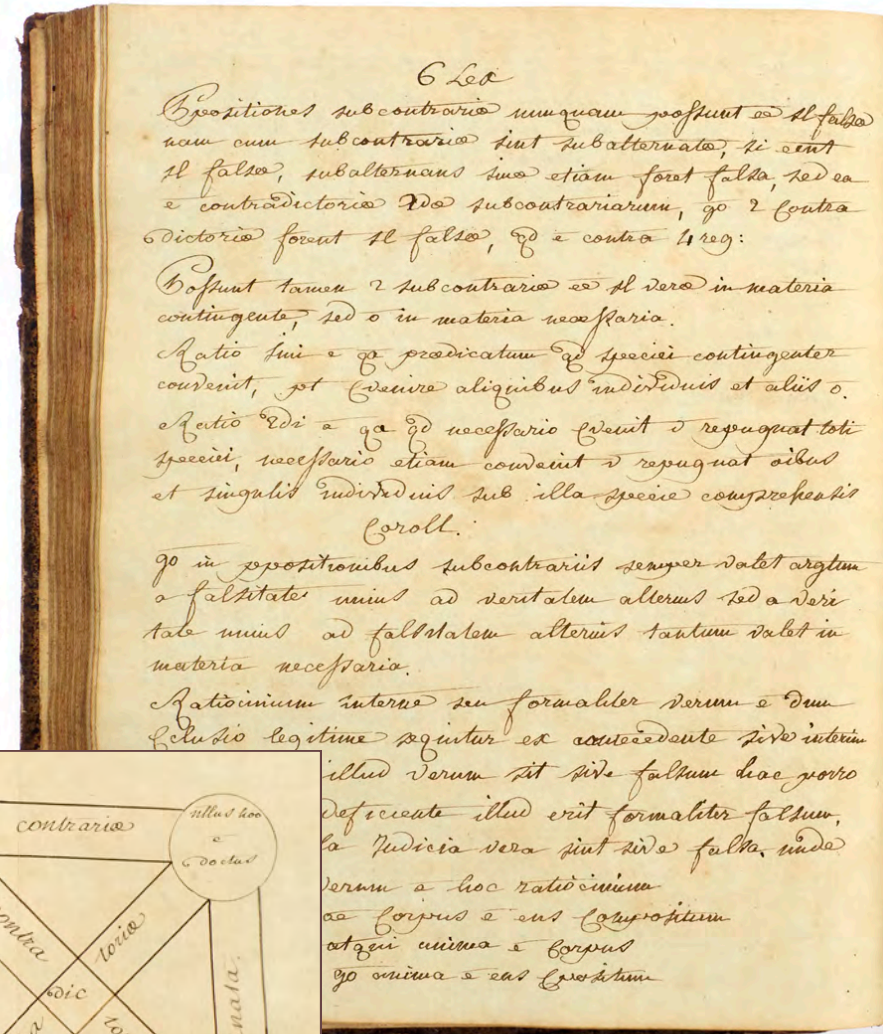 6 Lex
Ppositiones subcontrariæ nunquam possunt ee sl falsæ
nam cum subcontrariæ sint subalternatæ, si eent
sl falsæ, subalternans imæ etiam foret falsa, sed ea
e contradictoria 2dæ subcontrariarum, go 2 Contra
dictoriæ forent sl falsæ, qd e contra 4 reg:
Possunt tamen 2 subcontrariæ ee sl veræ in materia
contingente, sed o in materia necessaria.
Ratio imi e qa prædicatum qd speciei contingenter
convenit, pt Cvenire aliquibus individuis et aliis o.
Ratio 2di e qa qd necessario Cvenit v repugnat toti
speciei, necessario etiam convenit v repugnat oibus
et singulis individuis sub illa specie comprehensis
Coroll.
go in ppositionibus subcontrariis semper valet argtum
a falsitate unius ad veritatem alterius sed a veri
tate unius ad falsitatem alterius tantum valet in
materia necessaria.
Ratiocinium interne seu formaliter verum e dum
Cclusio legitime sequitur ex antecedente sive interim
illud verum sit sive falsum hac porro
deficiente illud erit formaliter falsum,
Judicia vera sint sive falsa. unde
verum e hoc ratiocinium
Corpus e ens Compositum
atqui anima e Corpus
go anima e ens Cpositum
contrariæ
nllus hoo
e
doctus
contra
toriæ
dic
nata.